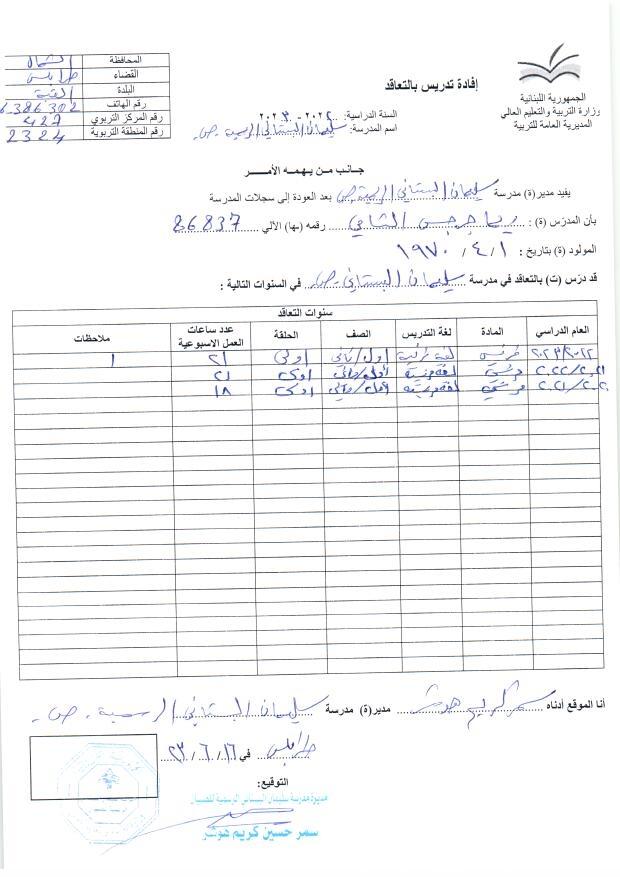 الجمهورية اللبنانية
وزارة التربية والتعليم العالي
المديرية العامة للتربية
إفادة تدريس بالتعاقد
السنة الدراسية: ٢٠٢٢ - ٢٠٢٣
اسم المدرسة: سليمان البستاني الرسمية ص.
المحافظة الشمال
القضاء طرابلس
البلدة القبة
رقم الهاتف 6.386302
رقم المركز التربوي 427
رقم المنطقة التربوية 2324
جانب من يهمه الأمر
يفيد مدير(ة) مدرسة سليمان البستاني الرسمية ص بعد العودة إلى سجلات المدرسة
بأن المدرّس (ة) : ريما جرجس الشامي رقمه (ها) الآلي 86837
المولود (ة) بتاريخ : ١ / ٤ / ١٩٧٠
قد درّس (ت) بالتعاقد في مدرسة سليمان البستاني ص. في السنوات التالية :
سنوات التعاقد
العام الدراسي المادة لغة التدريس الصف الحلقة عدد ساعات العمل الاسبوعية ملاحظات
٢٠٢٢/٢٠٢٣ فرنسي لغة فرنسية اول/ثاني اولى ٢١ ١
٢٠٢١/٢٠٢٢ فرنسي لغة فرنسية أول/ثاني اولى ٢١
٢٠٢٠/٢٠٢١ فرنسي لغة فرنسية أول/ثاني اولى ١٨
أنا الموقع أدناه سمر كريم هوشر مدير(ة) مدرسة سليمان البستاني الرسمية - ص.
طرابلس في ١٦ / ٦ / ٢٣
التوقيع:
مديرة مدرسة سليمان البستاني الرسمية للصبيان
سمر حسين كريم هوشر